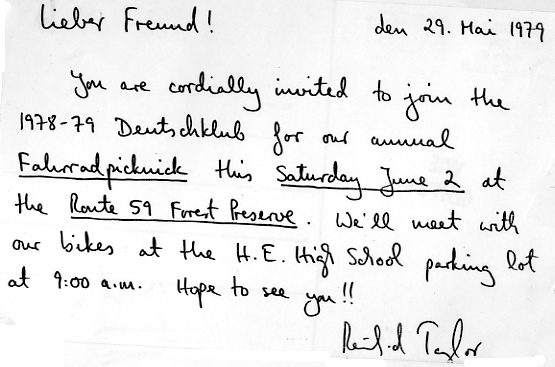 Lieber Freund! den 29. Mai 1979
You are cordially invited to join the
1978-79 Deutschklub for our annual
Fahrradpicknick this Saturday June 2 at
the Route 59 Forest Preserve. We'll meet with
our bikes at the H.E. High School parking lot
at 9:00 a.m. Hope to see you!!
Taylor